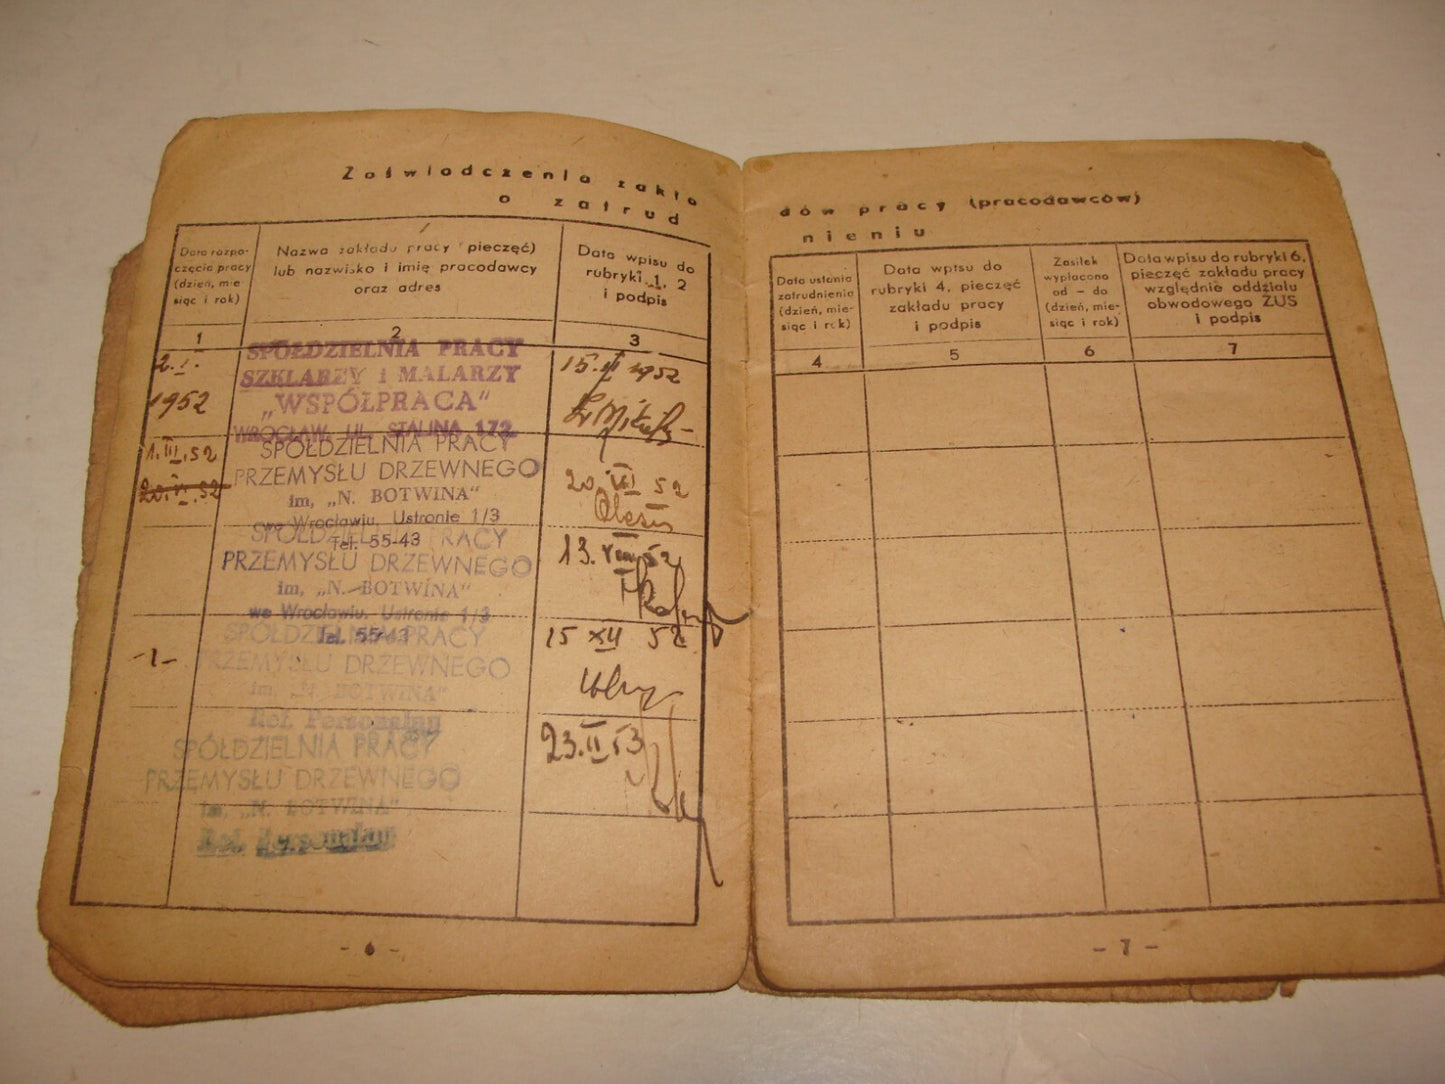 Zaświadczenia zakła
o zatrud
Data rozpo-
częcia pracy
(dzień, mie-
siąc i rok)
Nazwa zakładu pracy (pieczęć)
lub nazwisko i imię pracodawcy
oraz adres
Data wpisu do
rubryki 1, 2
i podpis
1
2
3
2.I.
1952
SPÓŁDZIELNIA PRACY
SZKLARZY i MALARZY
„WSPÓŁPRACA"
WROCŁAW, UL. STALINA 172
15. 1952
1.III.52
20.VI.52
SPÓŁDZIELNIA PRACY
PRZEMYSŁU DRZEWNEGO
im, „N. BOTWINA"
we Wrocławiu, Ustronie 1/3
Tel. 55-43
20. VI 52
SPÓŁDZIELNIA PRACY
PRZEMYSŁU DRZEWNEGO
im, „N. BOTWINA"
we Wrocławiu, Ustronie 1/3
Tel. 55-43
13. VIII 52
-1-
SPÓŁDZIELNIA PRACY
PRZEMYSŁU DRZEWNEGO
im, „N. BOTWINA"
Ref. Personalny
15 XII 52
SPÓŁDZIELNIA PRACY
PRZEMYSŁU DRZEWNEGO
im, „N. BOTWINA"
Ref. Personalny
23.II 53
- 6 -
dów pracy (pracodawców)
nieniu
Data ustania
zatrudnienia
(dzień, mie-
siąc i rok)
Data wpisu do
rubryki 4, pieczęć
zakładu pracy
i podpis
Zasiłek
wypłacono
od – do
(dzień, mie-
siąc i rok)
Data wpisu do rubryki 6,
pieczęć zakładu pracy
względnie oddziału
obwodowego ZUS
i podpis
4
5
6
7
- 7 -